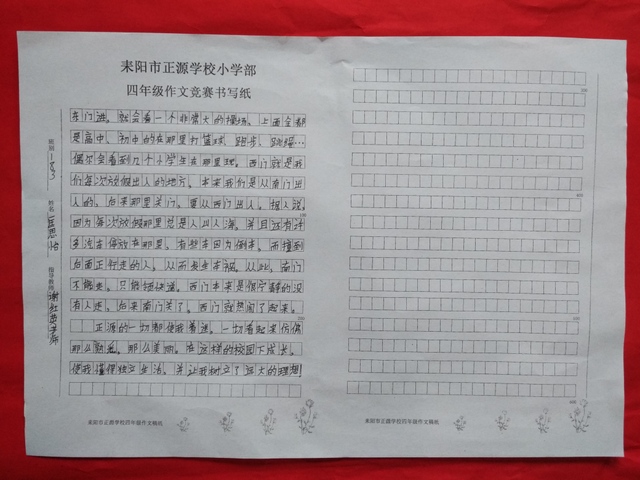 耒阳市正源学校小学部
四年级作文竞赛书写纸
东门进。就会看一个非常大的操场。上面全都
是高中、初中的在那里打篮球、跑步、跳绳…
偶尔会看到几个小学生在那里玩。西门就是我
们每次放假出入的地方。本来我们是从南门出
入的。后来那里关门。要从西门出入。据人说,
因为每次放假那里总是人山人海。并且还有许
多汽车停放在那里。有些车因为倒车。而撞到
后面正行走的人。从而发生车祸。从此,南门
不能走。只能领快递。西门本来是很宁静的没
有人走。后来南门关了。西门就热闹了起来。
正源的一切都使我着迷。一切看起来仿佛
那么勃,那么美丽。在这样的校园下成长。
使我懂得独立生活。并让我树立了远大的理想
班别
姓名
指导教师
100
200
300
400
500
600
耒阳市正源学校四年级作文稿纸
耒阳市正源学校四年级作文稿纸